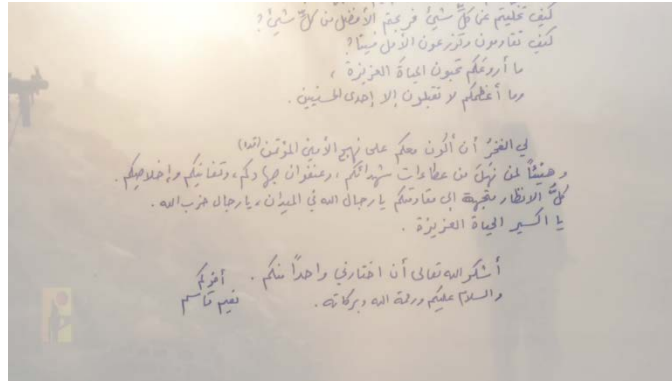 كيف تخليتم عن كلِّ شيئ فربحتم الأفضل من كلِّ شيئ؟
كيف تقاومون وتزرعون الأمل فينا؟
ما أروعكم تحبون الحياة العزيزة،
وما أعظمكم لا تقبلون إلا إحدى الحسنيين.
لي الفخرُ أن أكون معكم على نهج الأمين المؤتمن (قدا)
وهنيئاً لمن نَهَلَ من عطاءات شهدائكم، وعنفوان جهادكم، وتفانيكم وإخلاصكم.
كلُّ الأنظار متجهة إلى مقاومتكم يا رجال الله في الميدان، يا رجال حزب الله.
يا اكسير الحياة العزيزة.
أشكر الله تعالى أن اختارني واحداً منكم.
والسلام عليكم ورحمة الله وبركاته.
أخوكم
نعيم قاسم